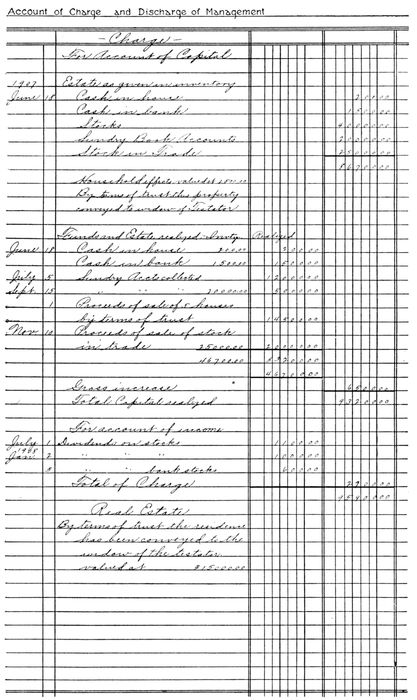 Account of Charge and Discharge of Management
- Charge -
For Account of Capital
1907 Estate as given in inventory
June 18 Cash in house 200 00
Cash in bank 1500 00
Stocks 40000 00
Sundry Book Accounts 20000 00
Stock in Trade 25000 00
86700 00
Household effects valued at
By terms of trust this property
conveyed to widow of Testator
Funds and Estate realized Invty. Realized
June 18 Cash in house 200 00 200 00
Cash in bank 1500 00 1500 00
July 5 Sundry Accts collected 12000 00
Sept. 15 " " " 20000 00 5000 00
1 Proceeds of sale of houses
by terms of trust 14500 00
Nov 10 Proceeds of sale of stock
in trade 25000 00 20000 00
46700 00 53200 00
46700 00
Gross increase 6500 00
Total Capital realized 93200 00
For account of income
July 1 Dividends on stocks 1100 00
1908
Jan. 2 " " " 1000 00
" " bank stocks
Total of Charge
Real Estate
By terms of trust the residence
has been conveyed to the
widow of the testator
valued at $15000 00